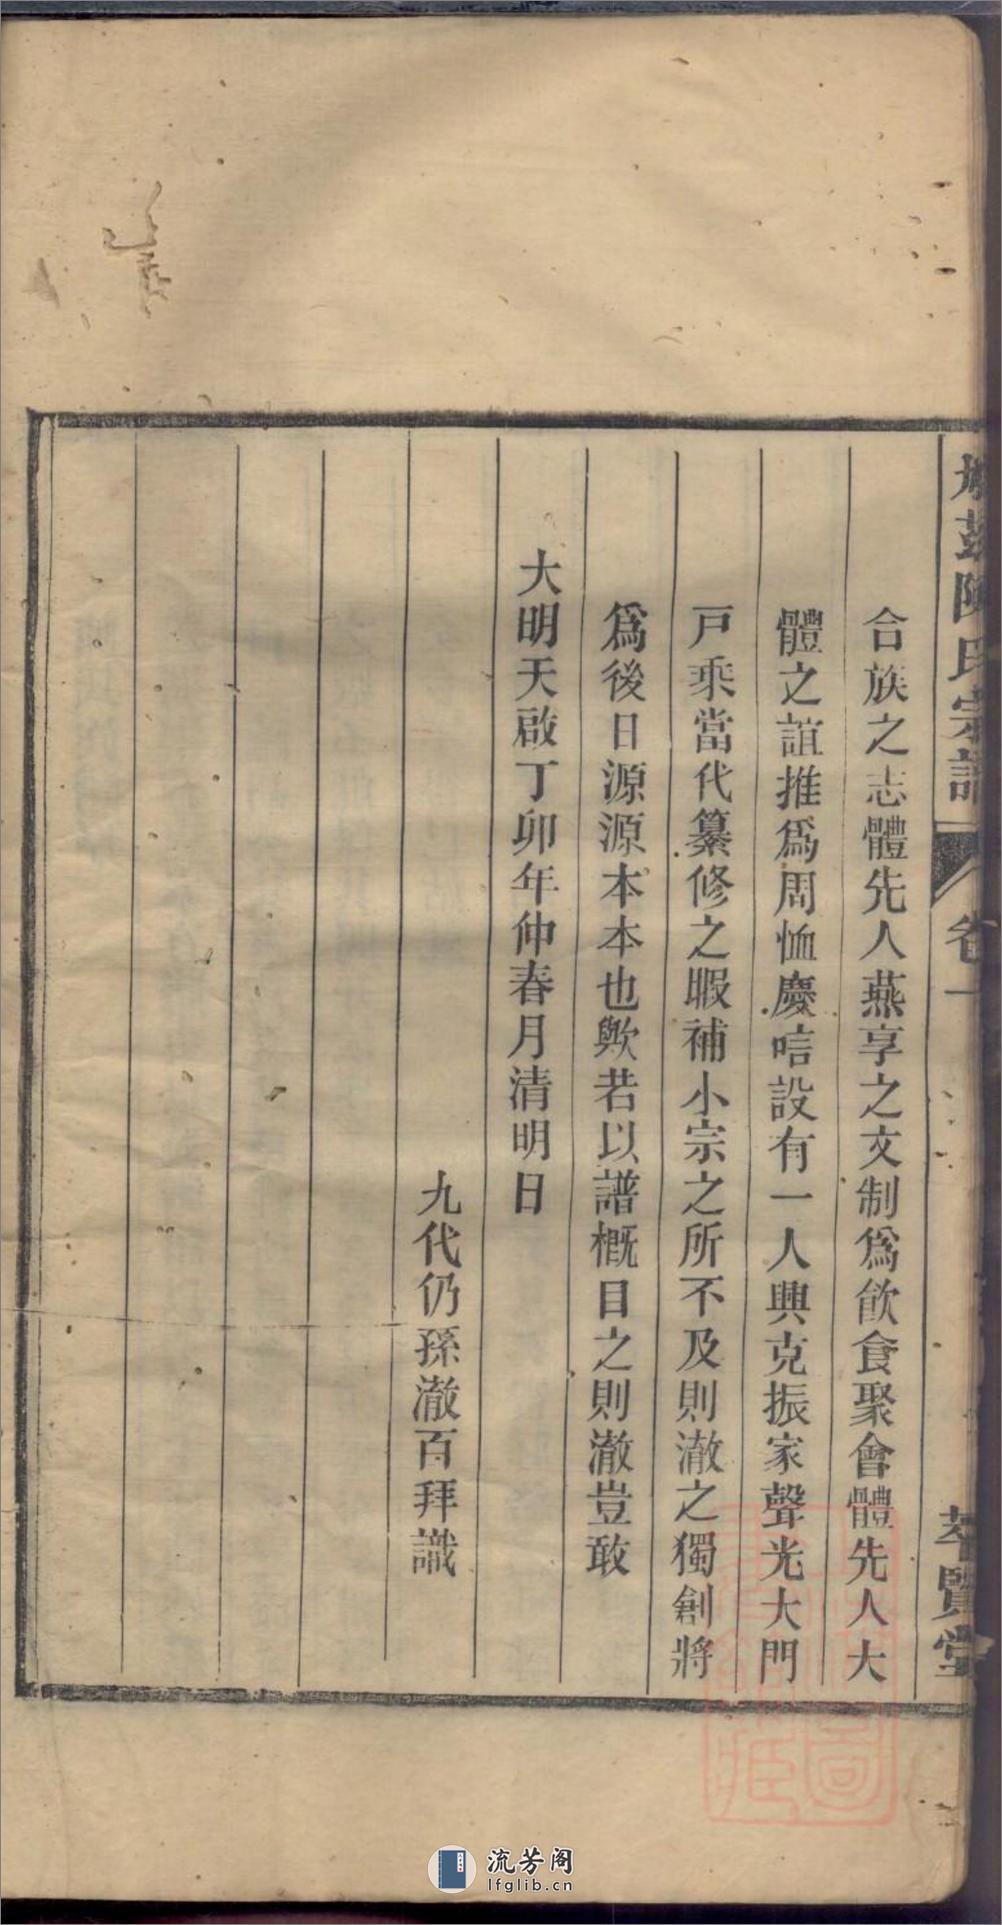 陳氏宗譜
卷一
萃賢堂
合族之志體先人燕享之文制爲飲食聚會體先人大
體之誼推爲周恤慶唁設有一人興克振家聲光大門
戸乘當代纂修之暇補小宗之所不及則澈之獨創將
爲後日源源本本也歟若以譜概目之則澈豈敢
大明天啟丁卯年仲春月清明日
九代仍孫澈百拜識
流芳阁
lfglib.cn